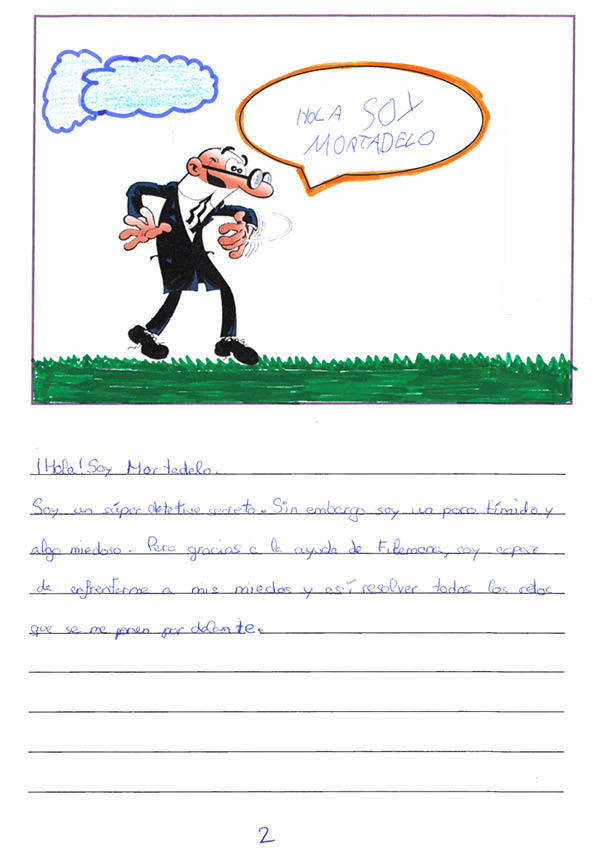 HOLA SOY
MORTADELO
¡Hola! Soy Mortadelo.
Soy un súper detetive secreto. Sin embargo soy un poco tímido y
algo miedoso. Pero gracias a la ayuda de Filemona, soy capaz
de enfrentarme a mis miedos y así resolver todos los retos
que se me ponen por delante.
2